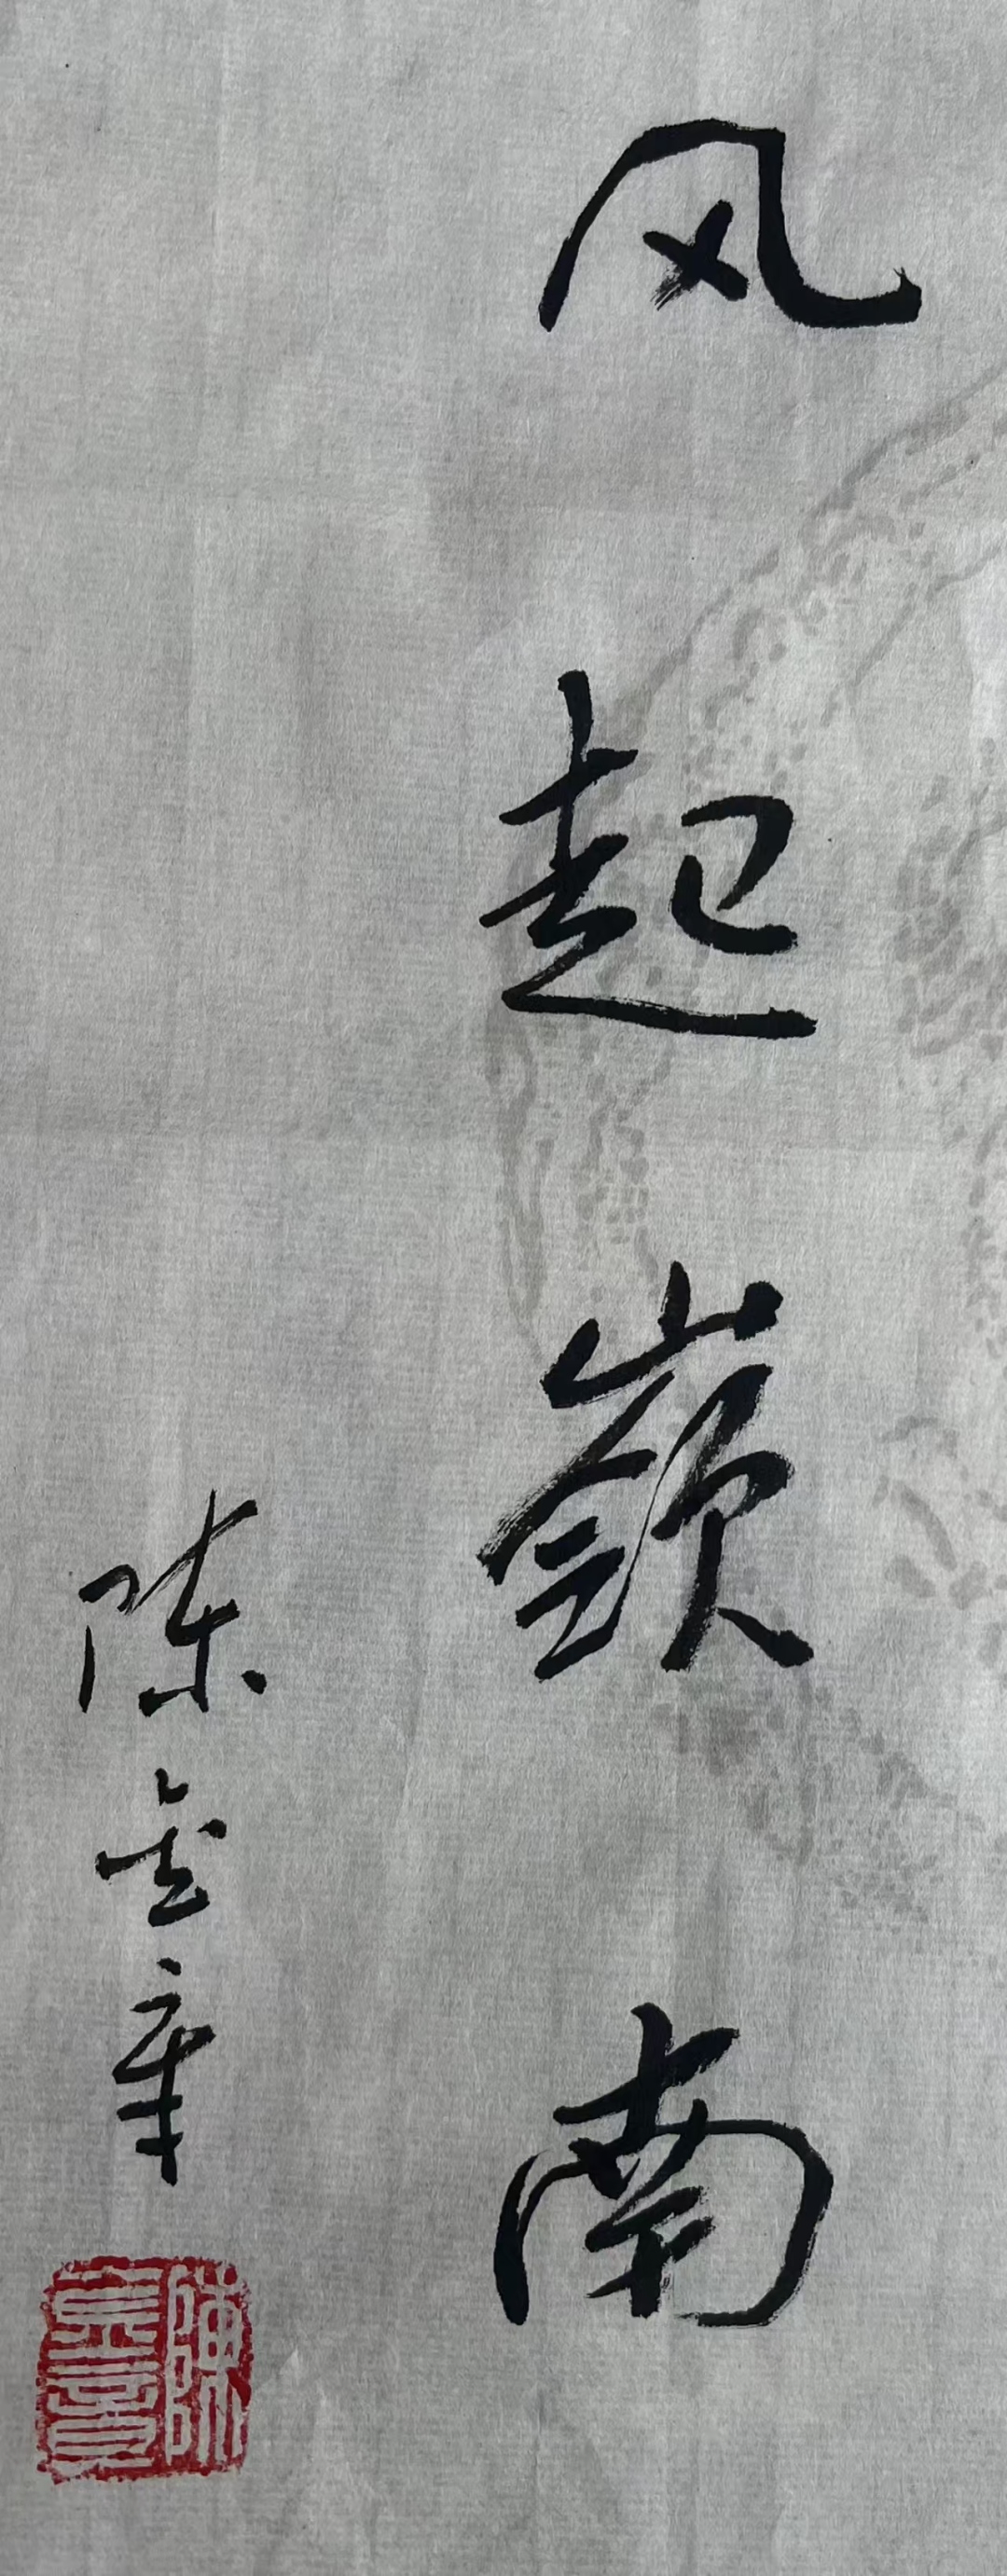 风起嶺南
陈金章